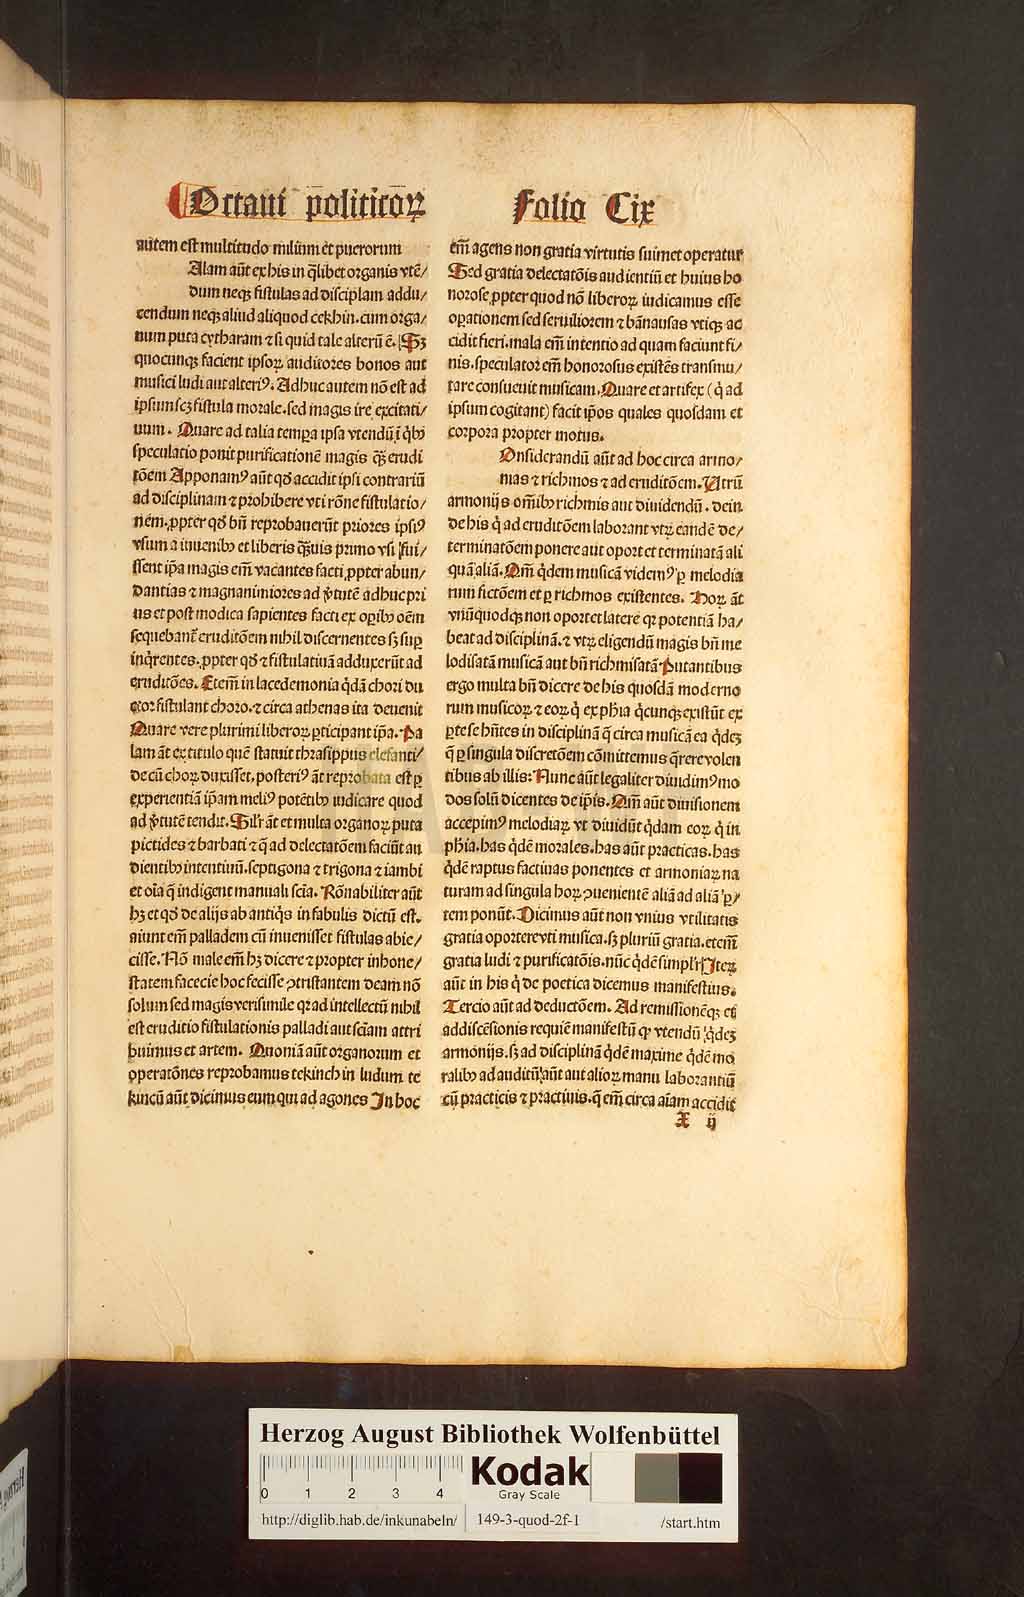 Octaui politicoꝝ
Folio Cix
autem est multitudo miliũm et puerorum
Alam aũt ex his in q̃libet organis vtẽ/
dum neqꝫ fistulas ad disciplam addu/
cendum neqꝫ aliud aliquod cekhin. cum orga/
num puta cytharam ⁊ si quid tale alterũ ẽ. Sꝫ
quocunqꝫ facient ipsoꝝ auditores bonos aut
musici ludi aut alteriꝰ. Adhuc autem nõ est ad
ipsum scꝫ fistula morale. sed magis ire excitati/
uum. Quare ad talia tempa ipsa vtendũ ĩ qͥbꝰ
speculatio ponit purificationẽ magis qꝫ̃ erudi
tõem Apponamꝰ aũt qꝺ accidit ipsi contrariũ
ad disciplinam ⁊ prohibere vti rõne fistulatio/
nem. ꝓpter qꝺ bñ reprobauerũt priores ipsiꝰ
vsum a iuuenibꝰ et liberis qꝫ̃uis primo vsi fui/
ssent ip̃a magis em̃ vacantes facti ꝓpter abun/
dantias ⁊ magnanimiores ad v̓tutẽ adhuc pri
us et post modica sapientes facti ex oꝑibꝰ oẽm
sequebant̃ eruditõem nihil discernentes sꝫ suꝑ
inqͥrentes. ꝓpter qꝺ ⁊ fistulatiuã adduxerũt ad
eruditões. Etem̃ in lacedemonia qͥdã chori du
ctor fistulant choro. ⁊ circa athenas ita deuenit
Quare vere plurimi liberoꝝ ꝑticipant ip̃a. Pa
lam ãt ex titulo quẽ statuit thrasippus elefanti/
de cũ choꝝ duxisset, posteriꝰ ãt reprobata est ꝑ
experientiã ip̃am meliꝰ potẽtibꝰ iudicare quod
ad v̓tutẽ tendit. Silr̃ ãt et multa organoꝝ puta
pictides ⁊ barbati ⁊ q̃ ad delectatõem faciũt au
dientibꝰ intentiuũ. septigona ⁊ trigona ⁊ iambi
et oĩa q̃ indigent manuali scĩa. Rõnabiliter aũt
hꝫ et qꝺ de alijs ab antiqͥs in fabulis dictũ est.
aiunt em̃ palladem cũ inuenisset fistulas abie/
cisse. Nõ male em̃ hꝫ dicere ⁊ propter inhone/
statem facecie hoc fecisse ꝯtristantem deam nõ
solum sed magis verisimile qꝛ ad intellectũ nihil
est eruditio fistulationis palladi aut scĩam attri
buimus et artem. Quoniã aũt organorum et
operatões reprobamus tekinch in ludum te
kincũ aũt dicimus eum qui ad agones In hoc
em̃ agens non gratia virtutis suimet operatur
Sed gratia delectatõis audientiũ et huius ho
norose ꝓpter quod nõ liberoꝝ iudicamus esse
oꝑationem sed seruiliorem ⁊ bãnausas vtiqꝫ ac
cidit fieri. mala em̃ intentio ad quam faciunt fi/
nis. speculator em̃ honorosus existẽs transmu/
tare consueuit musicam. Quare et artifex (q̓ ad
ipsum cogitant) facit ip̃os quales quosdam et
corpora propter motus.
Onsiderandũ aũt ad hoc circa armo/
nias ⁊ richmos ⁊ ad eruditõem. Vtrũ
armonijs om̃ibꝰ richmis aut diuidendũ. dein
de his q̓ ad eruditõem laborant vtꝝ eandẽ de/
terminatõem ponere aut oport et terminatã ali
quã aliã. Qm̃ qͥdem musicã videmꝰ ꝑ melodia
rum fictõem et ꝑ richmos existentes. Hoꝝ ãt
vnũquodqꝫ non oportet latere qꝛ potentiã ha/
beat ad disciplinã. ⁊ vtꝝ eligendũ magis bñ me
lodisatã musicã aut bñ richmisatã Putantibus
ergo multa bñ dicere de his quosdã moderno
rum musicoꝝ ⁊ eoꝝ q̓ ex ph̃ia qͥcunqꝫ existũt ex
ꝑte se hñtes in disciplinã q̃ circa musicã ea qͥdeꝫ
q̃ ꝑ singula discretõem cõmittemus q̃rere volen
tibus ab illis: Nunc aũt legaliter diuidimꝰ mo
dos solũ dicentes de ip̃is. Qm̃ aũt diuisionem
accepimꝰ melodiaꝝ vt diuidũt qͥdam eoꝝ q̓ in
ph̃ia. has qͥdẽ morales. has aũt practicas. has
qͥdẽ raptus factiuas ponentes et armoniaꝝ na
turam ad singula hoꝝ ꝯuenientẽ aliã ad aliã ꝑ/
tem ponũt. Dicimus aũt non vnius vtilitatis
gratia oportere vti musica. sꝫ pluriũ gratia. etem̃
gratia ludi ⁊ purificatõis. nũc qͥdẽ simplr̃ Iteꝝ
aũt in his q̓ de poetica dicemus manifestius.
Tercio aũt ad deductõem. Ad remissionẽqꝫ et
addiscẽsionis requiẽ manifestũ ꝙ vtendũ qͥdeꝫ
armonijs. sꝫ ad disciplinã qͥdẽ maxime qͥdẽ mo
ralibꝰ ad auditũ aũt aut alioꝝ manu laborantiũ
cũ practicis ⁊ practiuis. q̃ em̃ circa aĩam accidit
X ij
Herzog August Bibliothek Wolfenbüttel
0 1 2 3 4
Kodak
Gray Scale
http://diglib.hab.de/inkunabeln/ 149-3-quod-2f-1 /start.htm